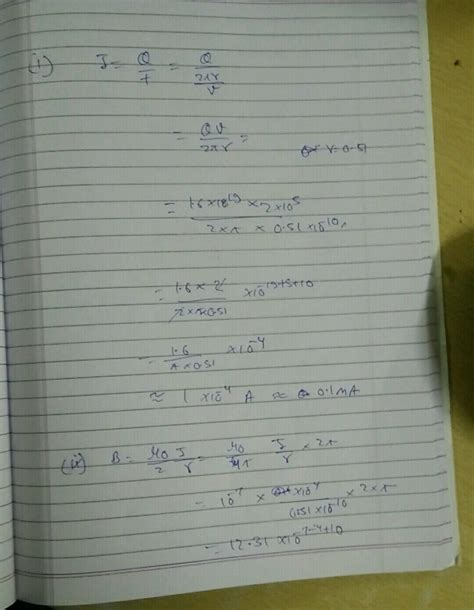 (i) I = Q/T = Q/(2πr/v)
= Qv/2πr =
r=0.51
= 1.6×10^-19 × 2×10^5 / 2×π × 0.51×10^-10
= 1.6 × 2 / 2×π×0.51 ×10^-19+5+10
= 1.6 / π×0.51 ×10^-4
≈ 1 ×10^-4 A ≈ 0.1mA
(ii) B = μ0 I / 2 r = μ0/4π I/r × 2π
= 10^-7 × ×10^-4 / 0.51×10^-10 × 2×π
= 12.31 ×10^-7-4+10